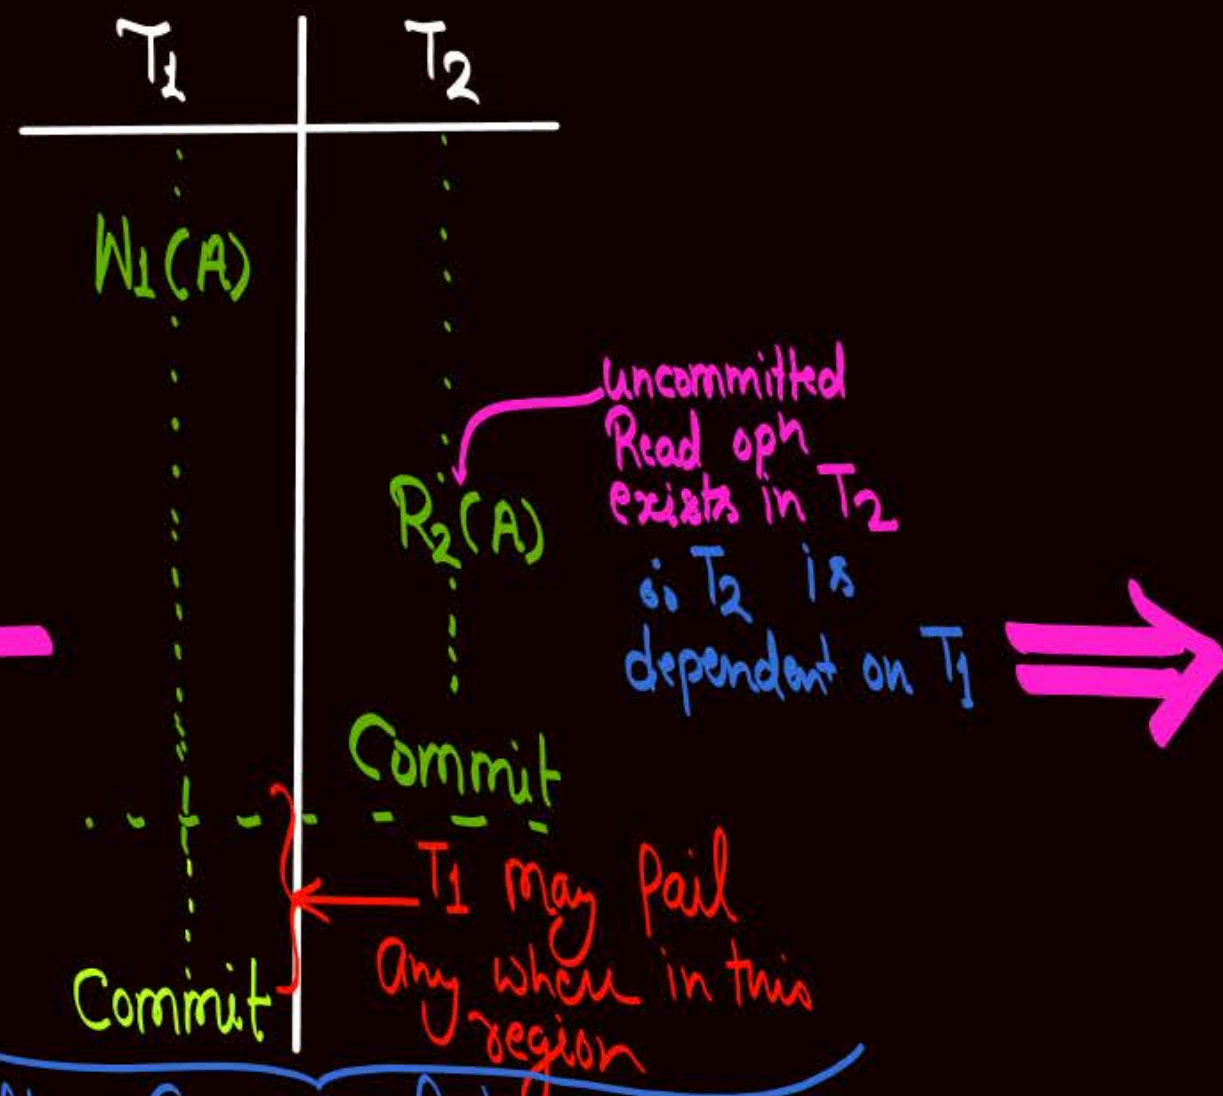 T1 T2
W1(A)
uncommitted
Read opn
exists in T2
R2(A)
∴ T2 is
dependent on T1
Commit
T1 may fail
Any where in this
region
Commit